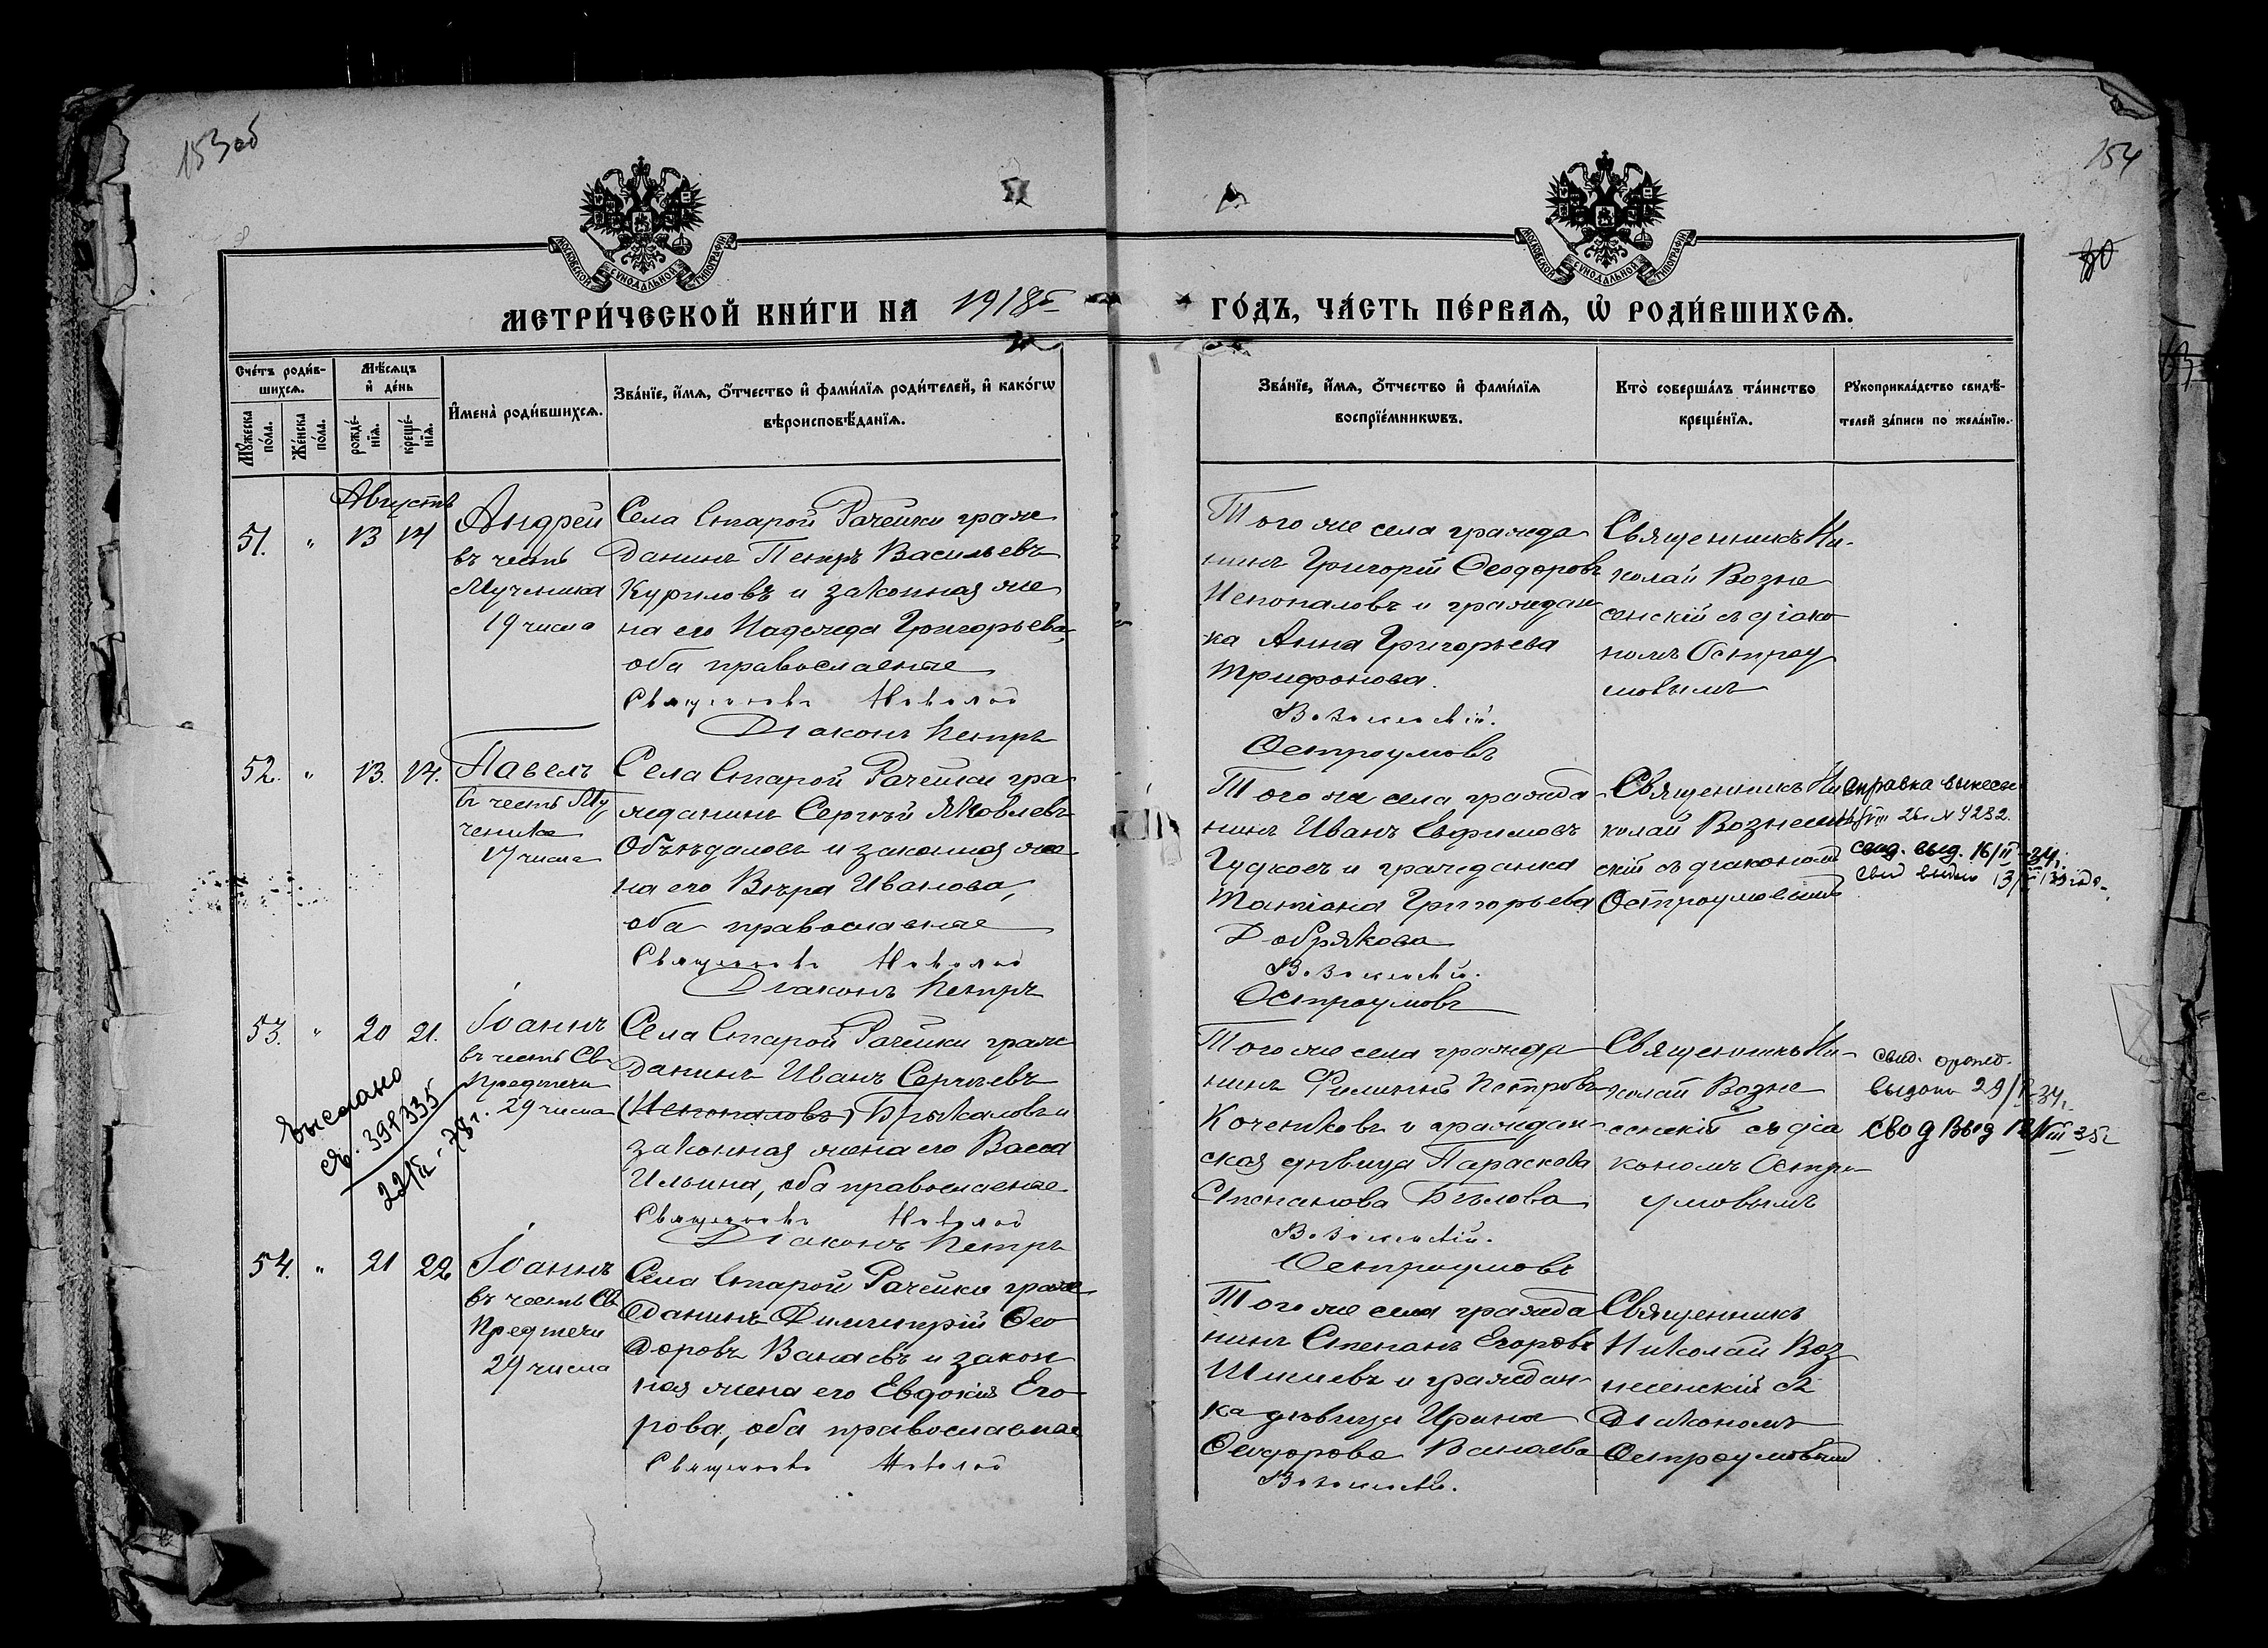 153об
154
80
МОСКОВСКОЙ СѴНОДАЛЬНОЙ ТИПОГРАФІИ
МОСКОВСКОЙ СѴНОДАЛЬНОЙ ТИПОГРАФІИ
МЕТРИ́ЧЕСКОЙ КНИ́ГИ НА 1918й ГО́ДЪ, ЧА́СТЬ ПЕ́РВАѦ, Ѡ҆ РОДИ́ВШИХСѦ.
Сче́тъ роди́в-
шихсѧ.
Мꙋ́жеска
по́ла.
Же́нска
по́ла.
Мѣ́сѧцъ
и҆ де́нь
рожде́-
нїѧ.
креще́-
нїѧ.
И҆мена̀ роди́вшихсѧ.
Зва́нїе, и҆́мѧ, ѻ҆́тчество и҆ фами́лїѧ роди́телей, и҆ како́гѡ
вѣроисповѣ́данїѧ.
Зва́нїе, и҆́мѧ, ѻ҆́тчество и҆ фами́лїѧ
воспрїе́мникѡвъ.
Кто̀ соверша́лъ та́инство
креще́нїѧ.
Рꙋкоприкла́дство свидѣ́-
телей за́писи по жела́нїю.
Августъ
51. " 13 14
Андрей
въ честь
Мученика
19 числа
Села Старой Рачейки граж
данинъ Петръ Васильевъ
Куриловъ и законная же
на его Надежда Григорьева,
оба православные
Священникъ Николай
Діаконъ Петръ
Того же села гражда
нинъ Григорій Ѳеодоровъ
Непопаловъ и граждан
ка Анна Григорьева
Трифонова.
Вознесенскій.
Остроумовъ
Священникъ Ни-
колай Возне
сенскій съ діако
номъ Остроу
мовымъ
52. " 13. 14.
Павелъ
въ честь Му
ченика
17 числа
Села Старой Рачейки гра
жданинъ Сергѣй Яковлевъ
Объѣдаловъ и законная же
на его Вѣра Иванова,
оба православные
Священникъ Николай
Діаконъ Петръ
Того же села гражда
нинъ Иванъ Евфимовъ
Гудковъ и гражданка
Татіана Григорьева
Добрякова
Вознесенскій.
Остроумовъ
Священникъ Ни
колай Вознесен
скій съ діакономъ
Остроумовымъ
Справка
VIII 26 г № 4282.
свид. выд. 16/II-34 г.
свид выдано
53. " 20 21.
Іоаннъ
въ честь Св.
Предтечи
29 числа
Села Старой Рачейки граж
данинъ Иванъ Сергѣевъ
(Непопаловъ) Брыкаловъ и
законная жена его Васса
Ильина, оба православные
Священникъ Николай
Діаконъ Петръ
Того же села гражда
нинъ Филиппъ Петровъ
Коченковъ и граждан-
ская дѣвица Параскева
Степанова Бѣлова
Вознесенскій.
Остроумовъ
Священникъ Ни-
колай Возне
сенскій съ діа
кономъ Остро-
умовымъ
свид. о рожд.
выдано 29/I-34 г.
свид выд 12/VIII 35 г
выслано
св. 398335
22/II-78 г.
54. " 21 22
Іоаннъ
въ честь Св
Предтечи
29 числа
Села Старой Рачейки граж
данинъ Димитрій Ѳео
доровъ Ванаевъ и закон
ная жена его Евдокія Его
рова, оба православные
Священникъ Николай
Того же села гражда
нинъ Степанъ Егоровъ
Шишевъ и граждан
ка дѣвица Ирина
Ѳеодорова Ванаева
Вознесенскій.
Священникъ
Николай Воз
несенскій съ
Діакономъ
Остроумовымъ